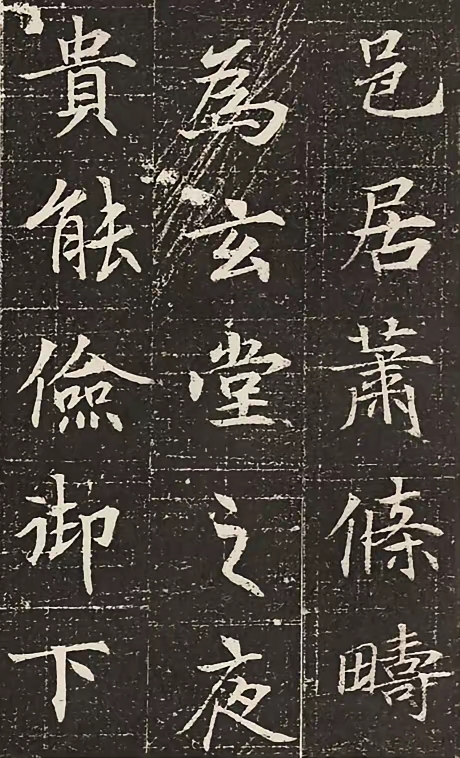 邑居蕭條疇
為玄堂之夜
貴能儉御下